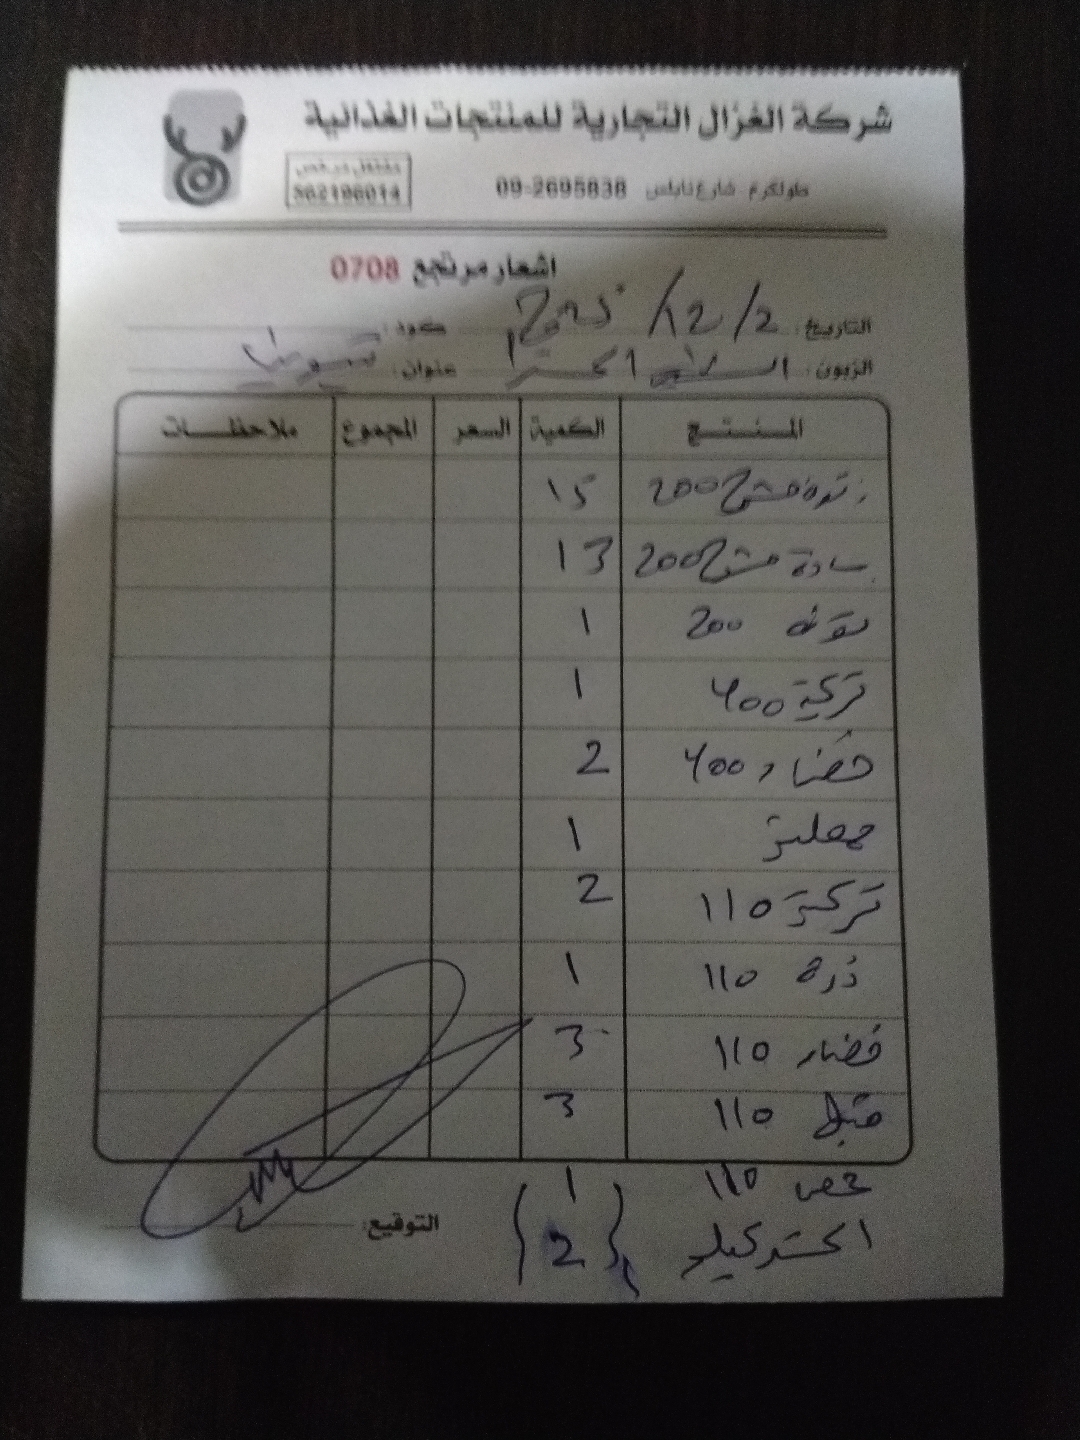 شركة الغزال التجارية للمنتجات الغذائية
طولكرم - شارع نابلس 09-2695838
مشتغل مرخص
562196014
اشعار مرتجع 0708
التاريخ: 2/12/2025 كود:
الزبون: السلام عنوان:
المنتج الكمية السعر المجموع ملاحظات
200 15
سادة 200 13
200 1
تركية 400 1
خضار 400 2
1
تركية 110 2
ذرة 110 1
خضار 110 3
متبل 110 3
حمص 110 1
كيلو 2
التوقيع: